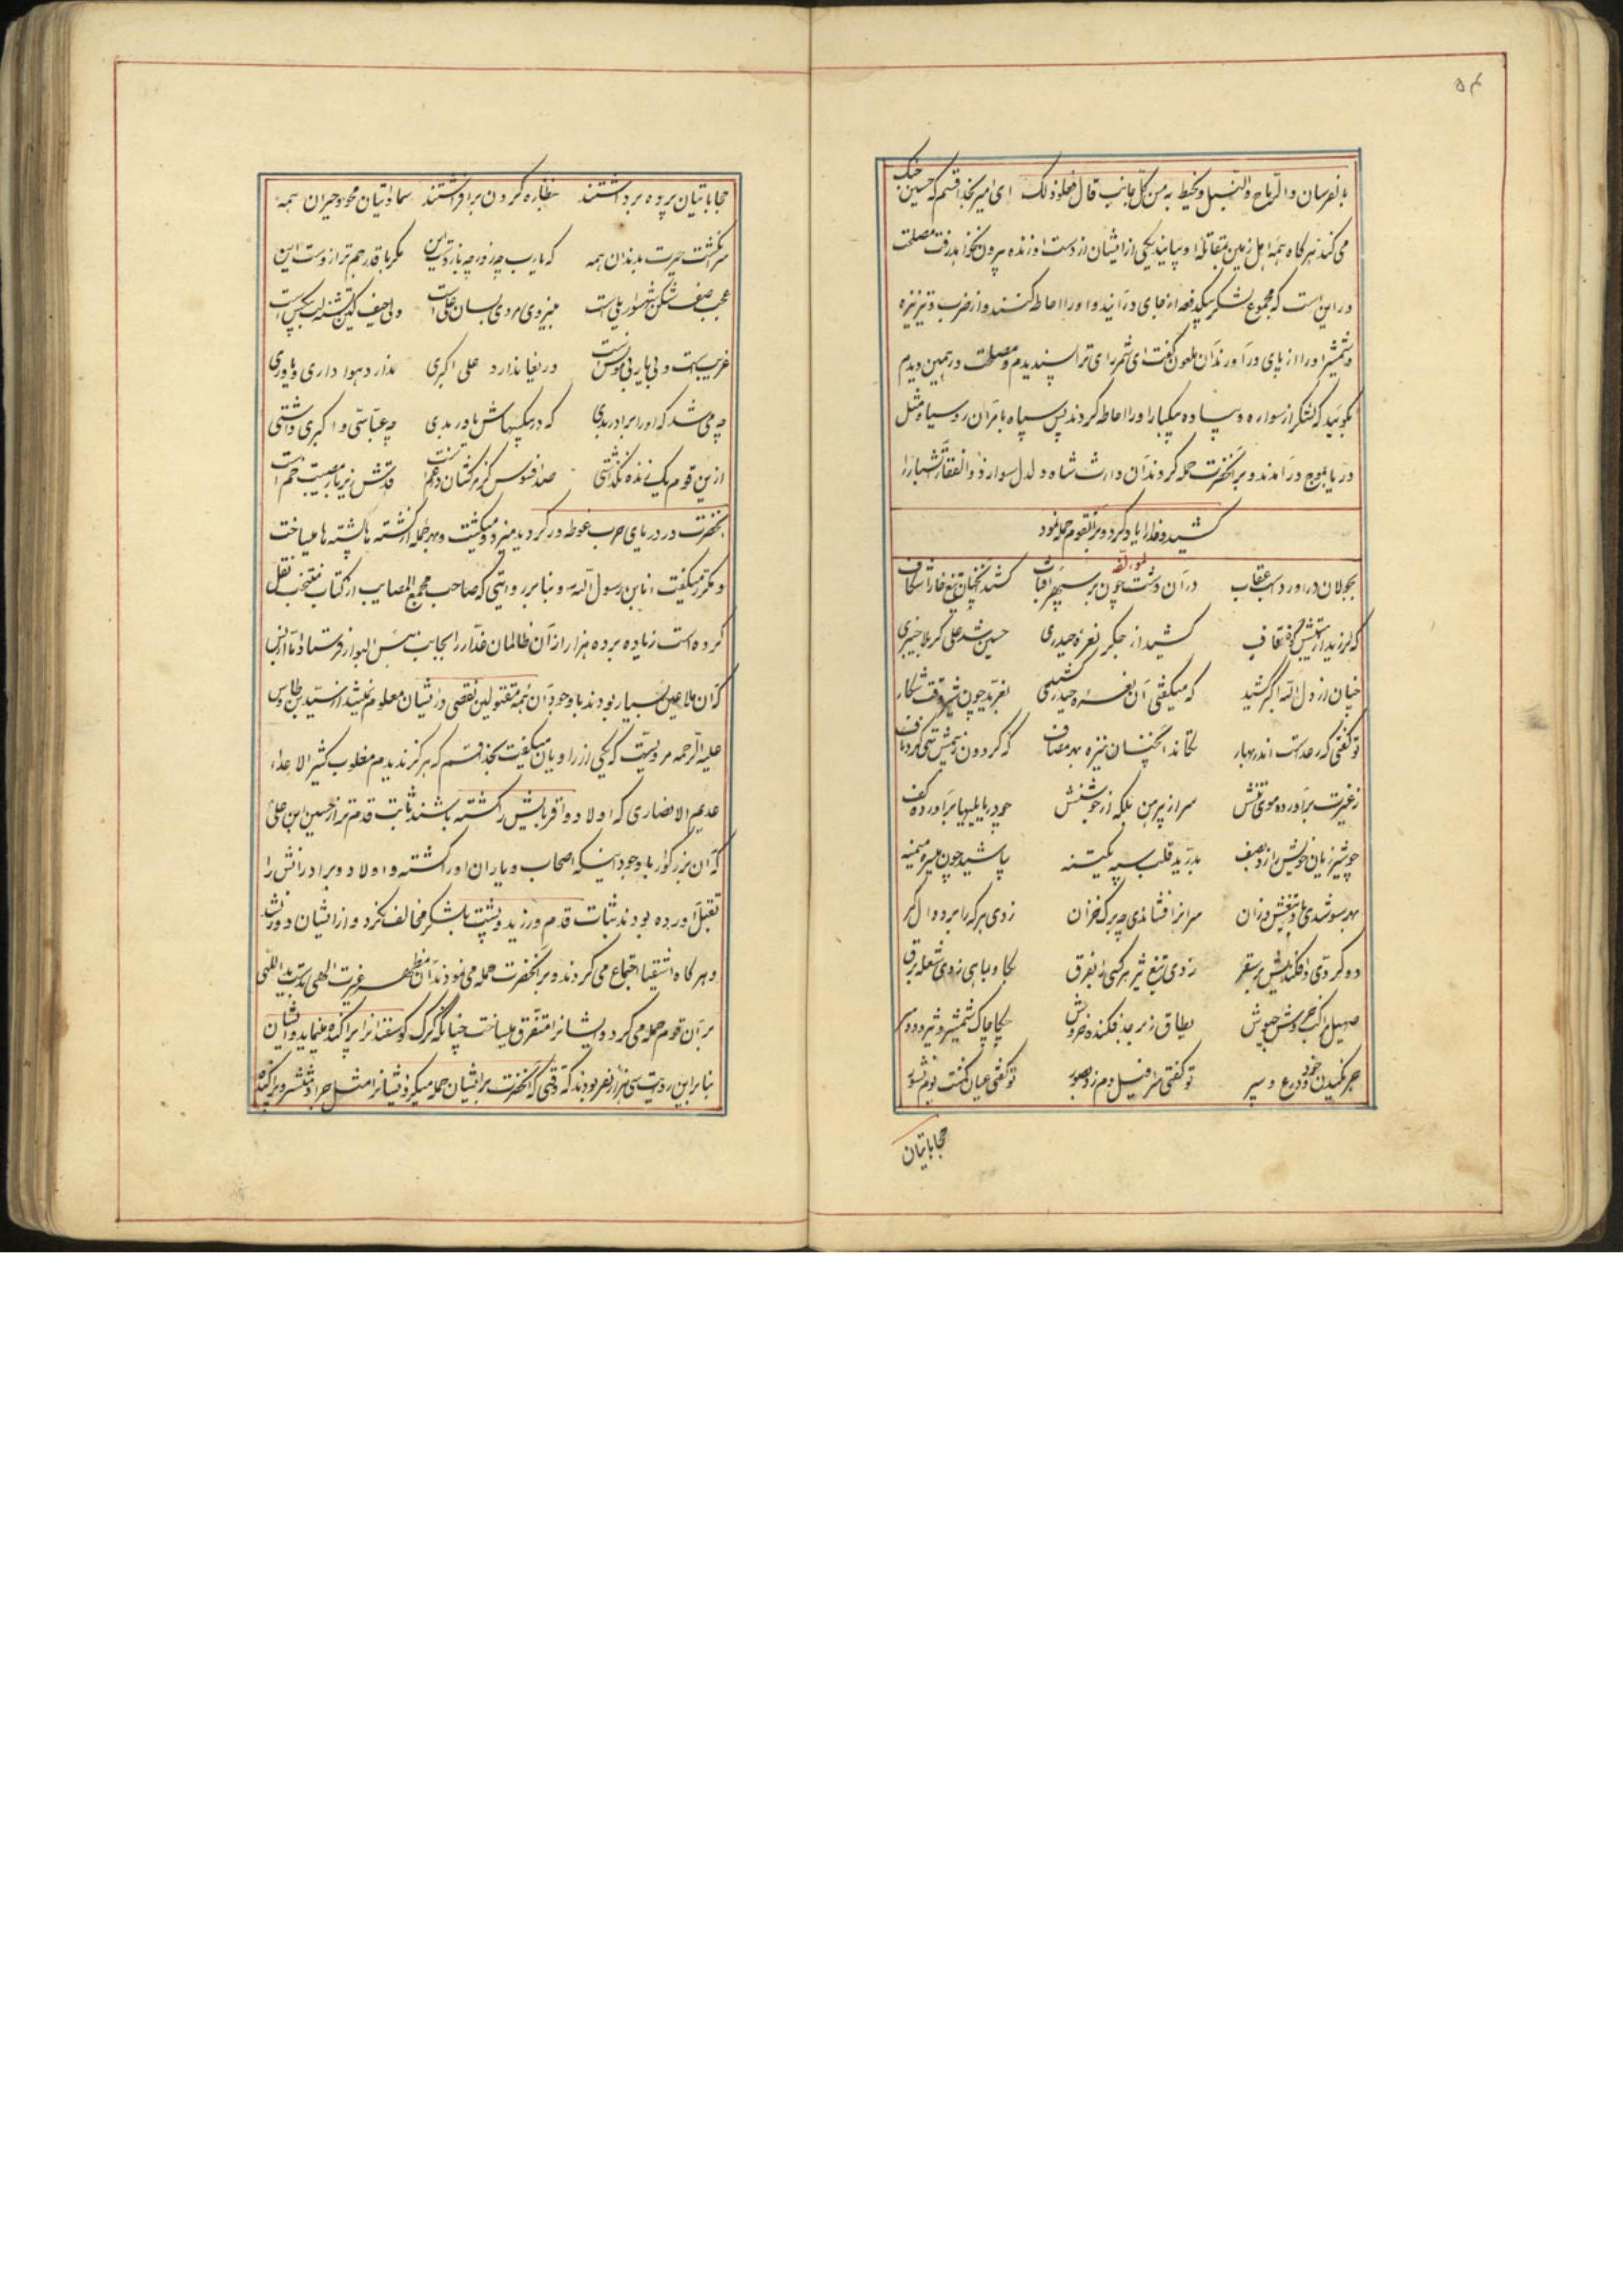 ۵۴
بالفرسان والرماح والنبل ونحیط به من کل جانب قال فعلوا ذلک ای امیر بخدا قسم که حسین جنک
می کند هرکاه همه اهل زمین بمقاتله او بیایند یکی از ایشان از دست او زنده بیرون نخواهد رفت مصلحت
در این است که مجموع لشکر بیکدفعه از جای درآیند و او را احاطه کنند و از ضرب و تیر نیزه
و شمشیر او را از پای درآورند آن ملعون کفت ای شمر رای ترا پسندیدم و مصلحت در همین دیدم
بکوئید که لشکر از سواره و پیاده بیکبار او را احاطه کردند پس سپاه با مر آن روسیاه مثل
دریا بموج درآمدند و بر آنحضرت حمله کردند آن وارث شاه دلدل سوار ذوالفقار آتشبار را
کشید و خدا را یاد کرد و بر آنقوم حمله نمود
بجولان درآورد اسب عقاب در آن دشت چون بر سپهر آفتاب کشید آنچنان تیغ خارا شکاف
که لرزید از کوه قاف کشید از جکر نعره حیدری حسین شد علی کربلا خیبری
چنان از دل الله اکبر کشید که میکفتی آن نعره حیدر کشید بغرید چون شیر وقت شکار
تو کفتی که رعد است اندر بهار تکاند آنچنان نیزه بهر مصاف که کردون
ز غیرت برآورده موی تنش سر از پیرهن بلکه از جوشنش چو دریا بلبها برآورده کف
چو شیر ژیان خویش را زد بصف بدرید قلب سپه یکتنه پاشید چون میسره میمنه
بهر سو شدی باد تیغش وزان سر انرا فشاندی چو برک خزان زدی هرکه را بر دوال کمر
دو کردی و افکندیش بر سقر زدی تیغ تیز هر کسی را بفرق بکاو و بماهی زدی شعله برق
صهیل بطاق زبرجد فکنده خروش چکاچاک شمشیر و تیر و دو سر
خود و درع و سپر تو کفتی سرافیل دم زد بصور تو کفتی عیان کشت یوم نشور
حجاباتیان
حجاباتیان پرده برداشتند نظاره کردون برافراشتند سماواتیان محو و حیران همه
سر انکشت حیرت بدندان همه که یارب چه زور و چه بازوست این مکر با قدر هم ترازوست این
عجب صف شکن شهسوار یلی است بنیروی مردی بسان علی است ولی حیف کین تشنه لب بیکس است
غریبست و بی یار و بی مونس است دریغا ندارد علی اکبری ندارد هوا داری و یاوری
چه می شد که او را برادر بدی که در بیکسیهاش یاور بدی چه عباسی و اکبری داشتی
ازین قوم یک زنده نکذاشتی صد افسوس کز مرک قدش زیر بار مصیبت خم است
آنحضرت در دریای حرب غوطه ور کردید میزد و میکشت و بهر حمله از کشته ها پشته ها میساخت
و مکرر میکفت انا بن رسول الله و بنا بر روایتی که صاحب مجمع المصایب از کتاب منتخب نقل
کرده است زیاده بر ده هزار از آن ظالمان غدار را بجانب بئس البوار فرستاد
که آن ملاعین بسیار بودند با وجود آن همه مقتولین نقصی در ایشان معلوم نمیشد از سید بن طاوس
علیه الرحمه مرویست که یکی از راویان میکفت بخدا قسم که هرکز ندیدم مغلوب کثیر الاعداء
عدیم الانصاری که اولاد و اقربایش را کشته باشند ثابت قدم تر از حسین ابن علی
که آن بزرکوار با وجود اینکه اصحاب و یاران او را کشته و اولاد و برادرانش را
بقتل آورده بودند ثبات قدم ورزید و پشت بلشکر مخالف نکرد و از ایشان
و هرکاه اشقیا اجتماع می کردند و بر آنحضرت حمله می نمودند آن مظهر غیرت الهی
بر آن قوم حمله می کرد و ایشانرا متفرق میساخت چنانکه کرک کوسفندانرا پراکنده مینماید و ایشان
بنا بر این روایت سی هزار نفر بودند که وقتی که آنحضرت بر ایشان حمله میکرد ایشانرا مثل جراد منتشر و پراکنده